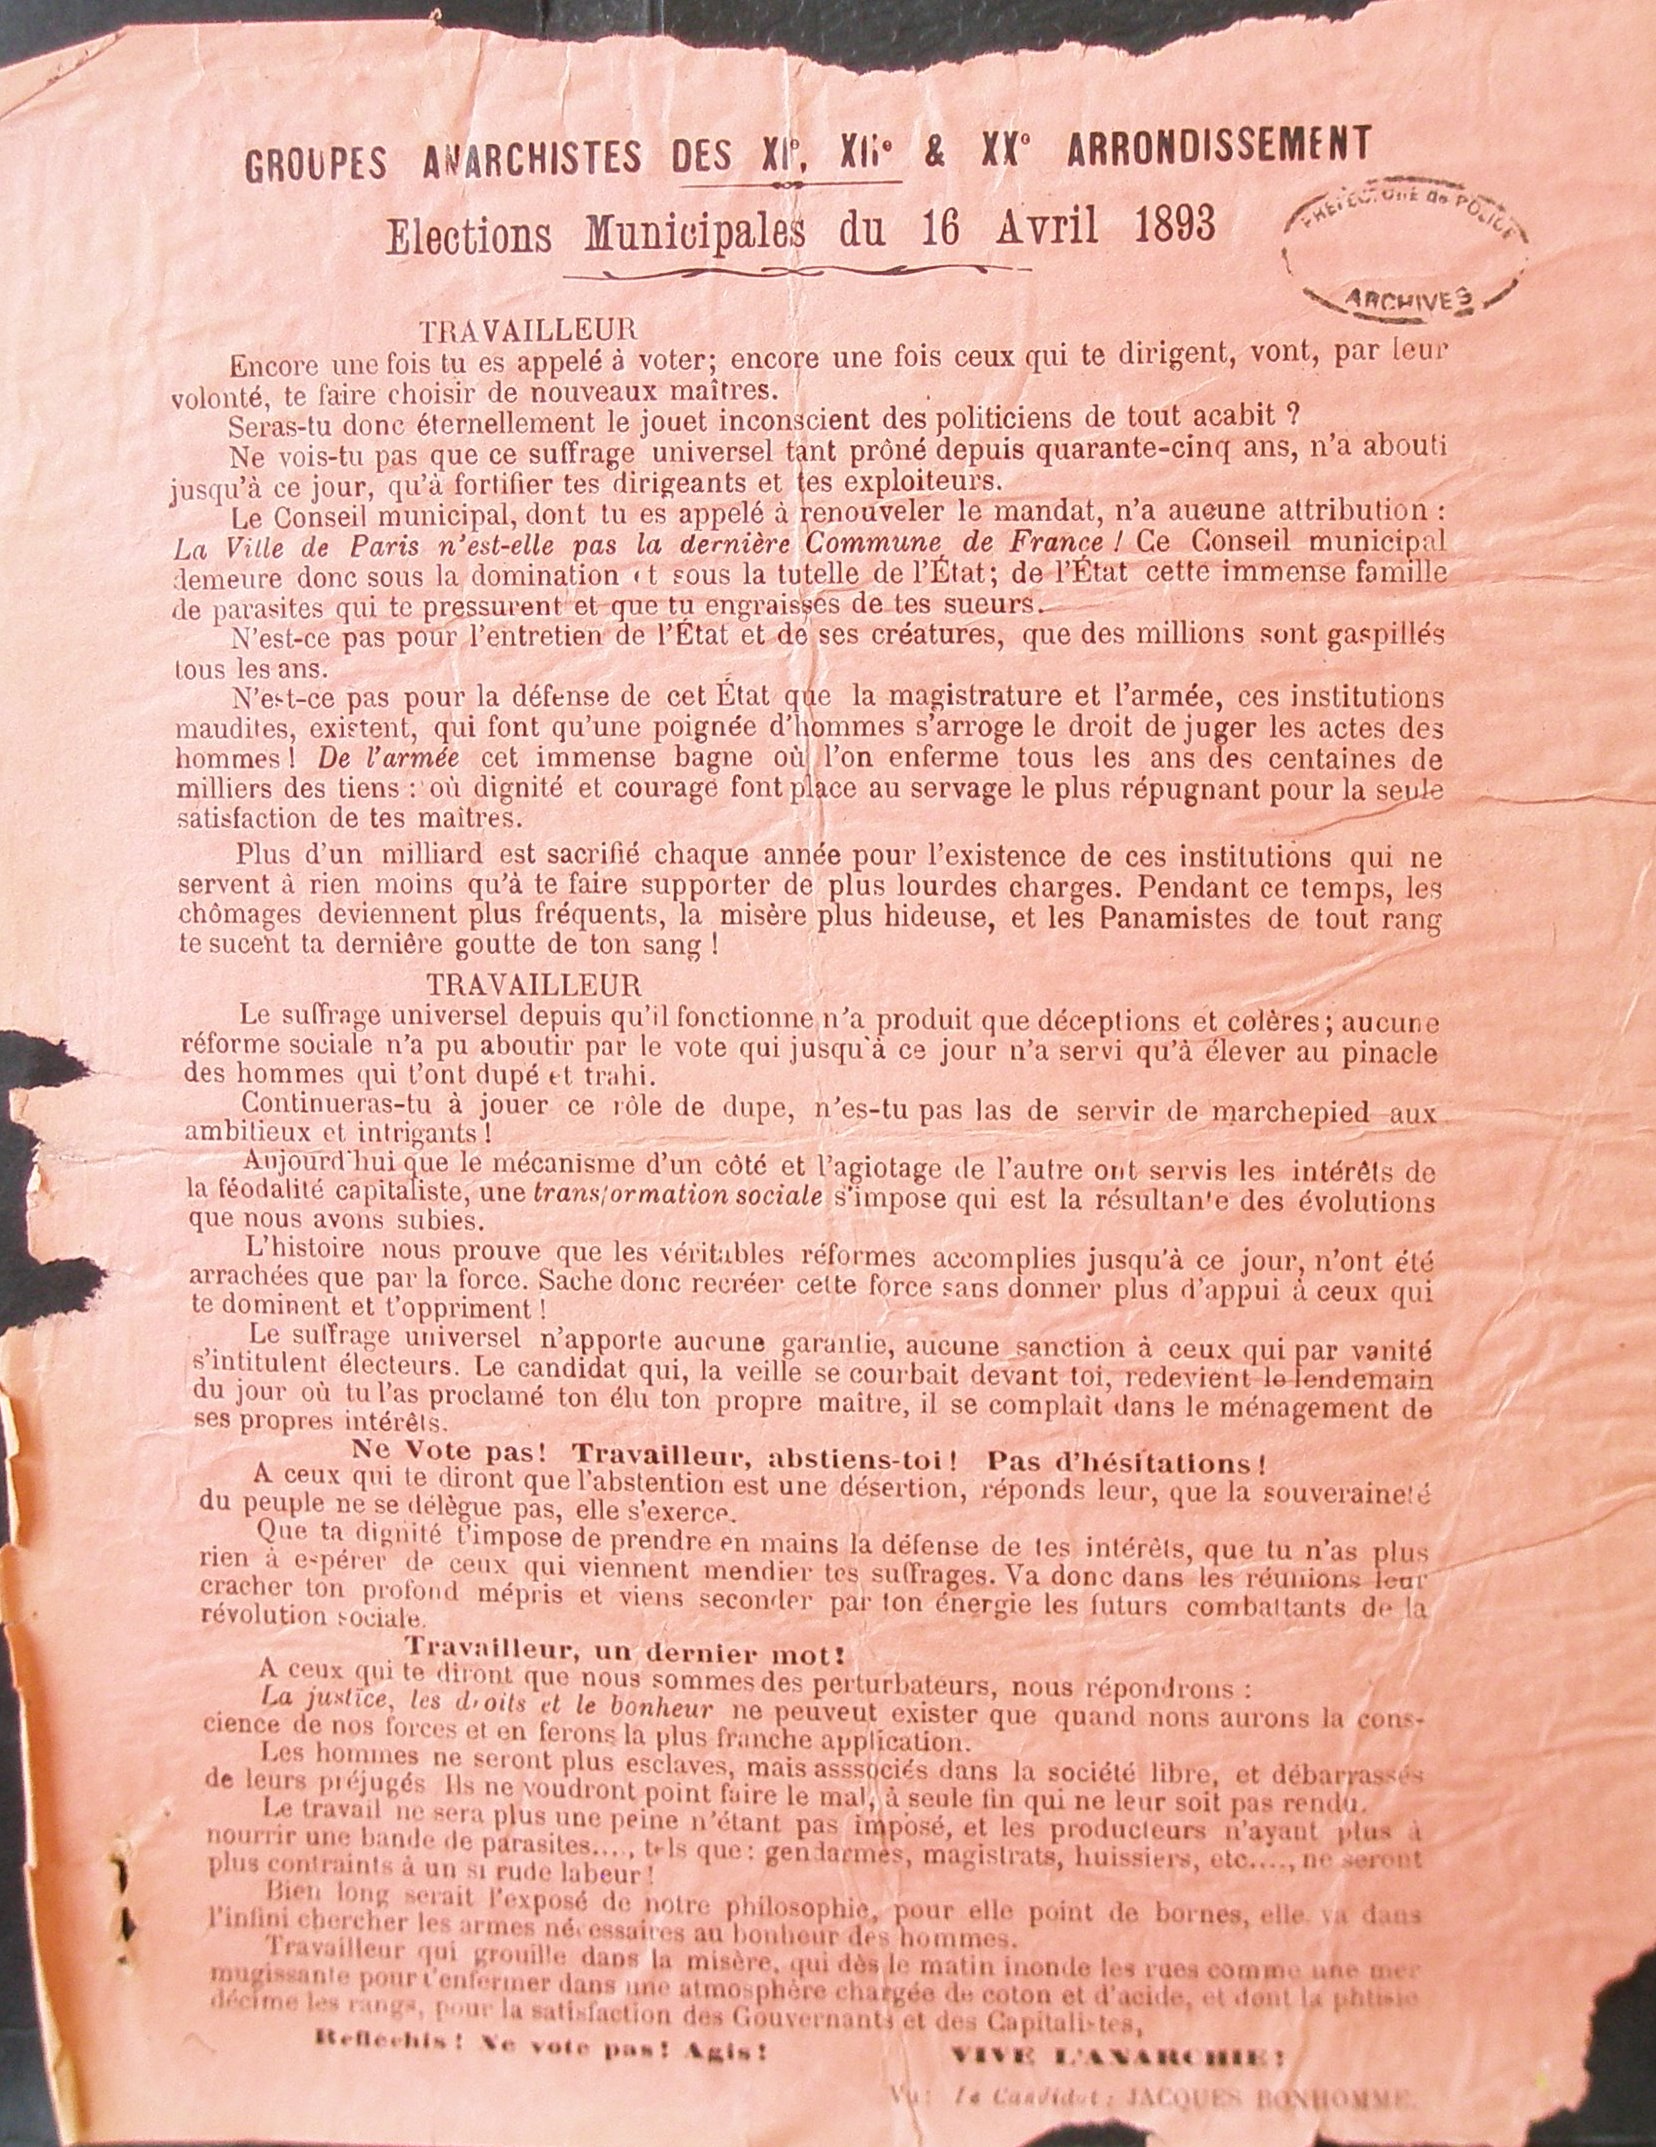 GROUPES ANARCHISTES DES XIe, XIIe & XXe ARRONDISSEMENT
Elections Municipales du 16 Avril 1893
PREFECTURE de POLICE
ARCHIVES
TRAVAILLEUR
Encore une fois tu es appelé à voter; encore une fois ceux qui te dirigent, vont, par leur
volonté, te faire choisir de nouveaux maîtres.
Seras-tu donc éternellement le jouet inconscient des politiciens de tout acabit ?
Ne vois-tu pas que ce suffrage universel tant prôné depuis quarante-cinq ans, n'a abouti
jusqu'à ce jour, qu'à fortifier tes dirigeants et tes exploiteurs.
Le Conseil municipal, dont tu es appelé à renouveler le mandat, n'a aucune attribution :
La Ville de Paris n'est-elle pas la dernière Commune de France ! Ce Conseil municipal
demeure donc sous la domination et sous la tutelle de l'État; de l'État cette immense famille
de parasites qui te pressurent et que tu engraisses de tes sueurs.
N'est-ce pas pour l'entretien de l'État et de ses créatures, que des millions sont gaspillés
tous les ans.
N'est-ce pas pour la défense de cet État que la magistrature et l'armée, ces institutions
maudites, existent, qui font qu'une poignée d'hommes s'arroge le droit de juger les actes des
hommes ! De l'armée cet immense bagne où l'on enferme tous les ans des centaines de
milliers des tiens : où dignité et courage font place au servage le plus répugnant pour la seule
satisfaction de tes maîtres.
Plus d'un milliard est sacrifié chaque année pour l'existence de ces institutions qui ne
servent à rien moins qu'à te faire supporter de plus lourdes charges. Pendant ce temps, les
chômages deviennent plus fréquents, la misère plus hideuse, et les Panamistes de tout rang
te sucent ta dernière goutte de ton sang !
TRAVAILLEUR
Le suffrage universel depuis qu'il fonctionne n'a produit que déceptions et colères; aucune
réforme sociale n'a pu aboutir par le vote qui jusqu'à ce jour n'a servi qu'à élever au pinacle
des hommes qui t'ont dupé et trahi.
Continueras-tu à jouer ce rôle de dupe, n'es-tu pas las de servir de marchepied aux
ambitieux et intrigants !
Aujourd'hui que le mécanisme d'un côté et l'agiotage de l'autre ont servis les intérêts de
la féodalité capitaliste, une transformation sociale s'impose qui est la résultante des évolutions
que nous avons subies.
L'histoire nous prouve que les véritables réformes accomplies jusqu'à ce jour, n'ont été
arrachées que par la force. Sache donc recréer cette force sans donner plus d'appui à ceux qui
te dominent et t'oppriment !
Le suffrage universel n'apporte aucune garantie, aucune sanction à ceux qui par vanité
s'intitulent électeurs. Le candidat qui, la veille se courbait devant toi, redevient le lendemain
du jour où tu l'as proclamé ton élu ton propre maître, il se complaît dans le ménagement de
ses propres intérêts.
Ne Vote pas! Travailleur, abstiens-toi! Pas d'hésitations!
A ceux qui te diront que l'abstention est une désertion, réponds leur, que la souveraineté
du peuple ne se délègue pas, elle s'exerce.
Que ta dignité t'impose de prendre en mains la défense de tes intérêts, que tu n'as plus
rien à espérer de ceux qui viennent mendier tes suffrages. Va donc dans les réunions leur
cracher ton profond mépris et viens seconder par ton énergie les futurs combattants de la
révolution sociale.
Travailleur, un dernier mot!
A ceux qui te diront que nous sommes des perturbateurs, nous répondrons :
La justice, les droits et le bonheur ne peuveut exister que quand nons aurons la cons-
cience de nos forces et en ferons la plus franche application.
Les hommes ne seront plus esclaves, mais asssociés dans la société libre, et débarrassés
de leurs préjugés Ils ne voudront point faire le mal, à seule fin qui ne leur soit pas rendu.
Le travail ne sera plus une peine n'étant pas imposé, et les producteurs n'ayant plus à
nourrir une bande de parasites...., tels que: gendarmes, magistrats, huissiers, etc...., ne seront
plus contraints à un si rude labeur !
Bien long serait l'exposé de notre philosophie, pour elle point de bornes, elle va dans
l'infini chercher les armes nécessaires au bonheur des hommes.
Travailleur qui grouille dans la misère, qui dès le matin inonde les rues comme une mer
mugissante pour t'enfermer dans une atmosphère chargée de coton et d'acide, et dont la phtisie
décime les rangs, pour la satisfaction des Gouvernants et des Capitalistes,
Reflechis! Ne vote pas! Agis!
VIVE L'ANARCHIE!
Vu: Le Candidat: JACQUES BONHOMME.